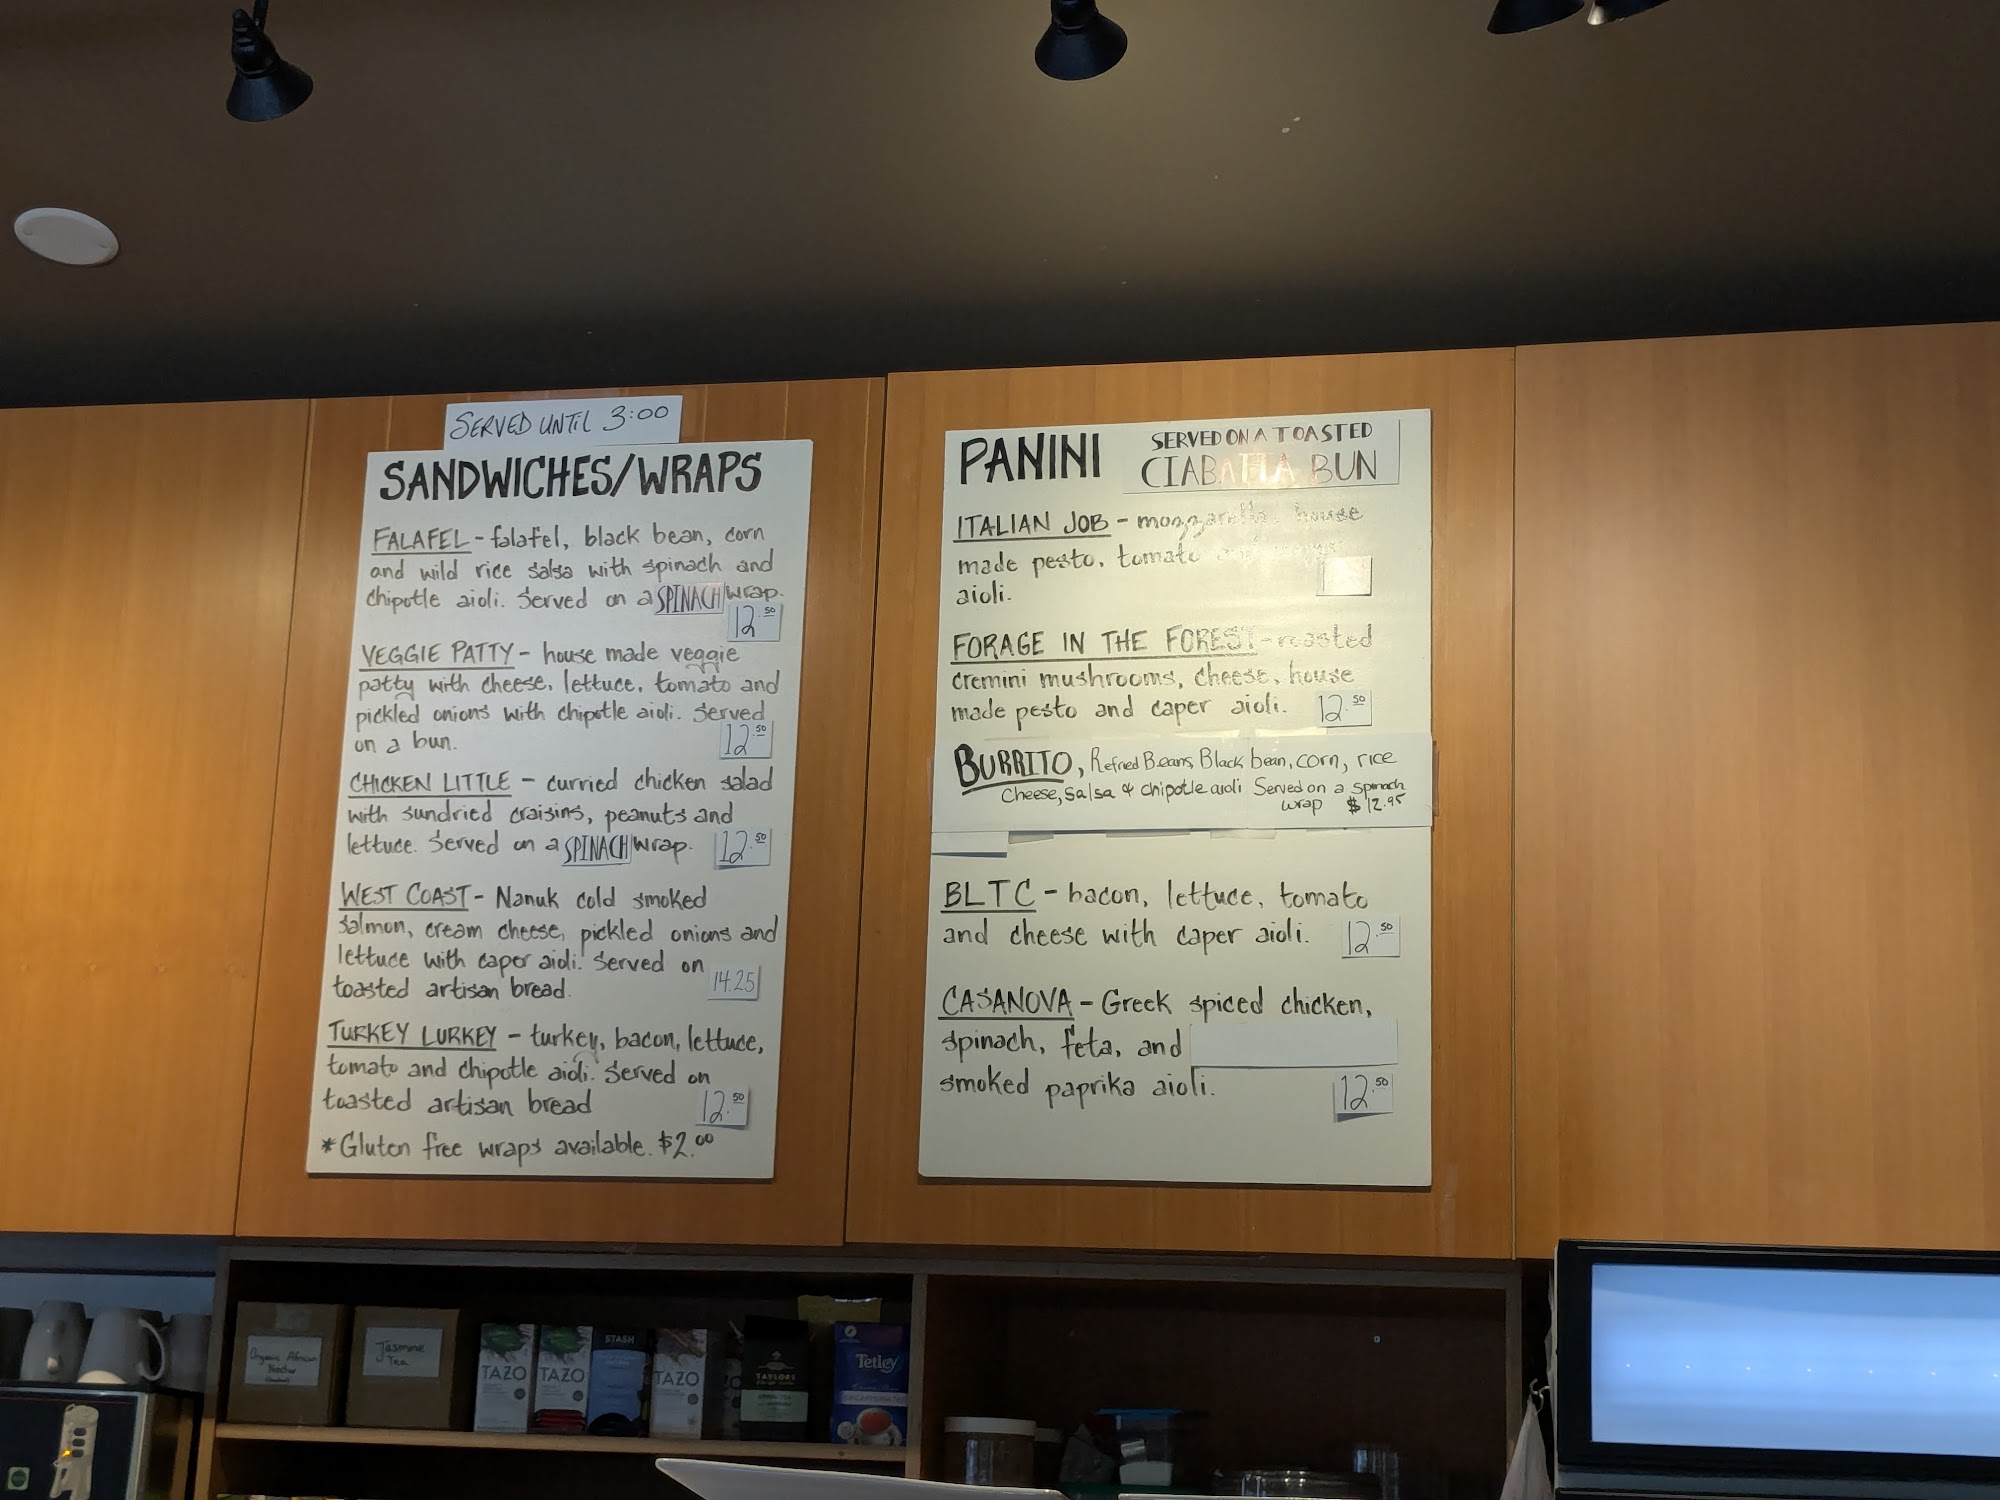 SERVED UNTIL 3:00
SANDWICHES/WRAPS
FALAFEL - falafel, black bean, corn
and wild rice salsa with spinach and
chipotle aioli. Served on a SPINACH wrap.
12.50
VEGGIE PATTY - house made veggie
patty with cheese, lettuce, tomato and
pickled onions with chipotle aioli. Served
on a bun.
12.50
CHICKEN LITTLE - curried chicken salad
with sundried craisins, peanuts and
lettuce. Served on a SPINACH wrap. 12.50
WEST COAST - Nanuk cold smoked
salmon, cream cheese, pickled onions and
lettuce with caper aioli. Served on
toasted artisan bread. 14.25
TURKEY LURKEY - turkey, bacon, lettuce,
tomato and chipotle aioli. Served on
toasted artisan bread 12.50
*Gluten free wraps available. $2.00
PANINI
SERVED ON A TOASTED
CIABATTA BUN
ITALIAN JOB - mozzarella, house
made pesto, tomato
aioli.
FORAGE IN THE FOREST - roasted
cremini mushrooms, cheese, house
made pesto and caper aioli. 12.50
BURRITO, Refried Beans, Black bean, corn, rice
Cheese, Salsa & chipotle aioli Served on a spinach
wrap $12.95
BLTC - bacon, lettuce, tomato
and cheese with caper aioli. 12.50
CASANOVA - Greek spiced chicken,
spinach, feta, and
smoked paprika aioli. 12.50
Organic African
Nectar
Jasmine
Tea
TAZO
TAZO
STASH
TAZO
TAYLORS
Tetley